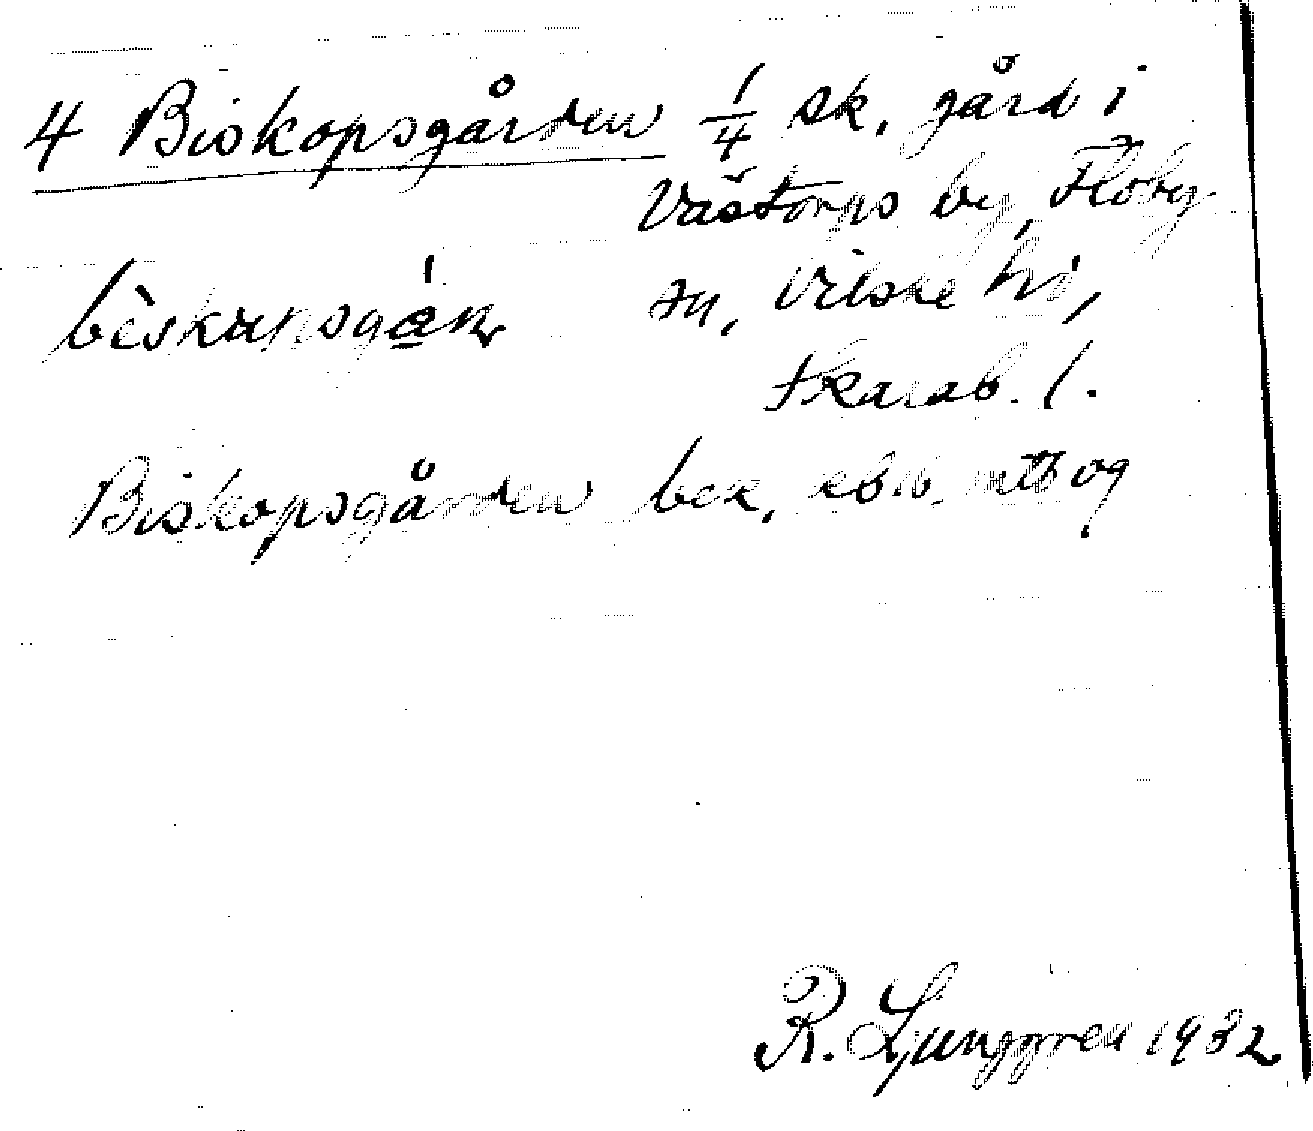 4 Biskopsgården 1/4 sk. gård i
Västorps by, Floby
sn, Vilske hd,
Skarab. l.
Biskopsgården bek.
R. Ljunggren 1932